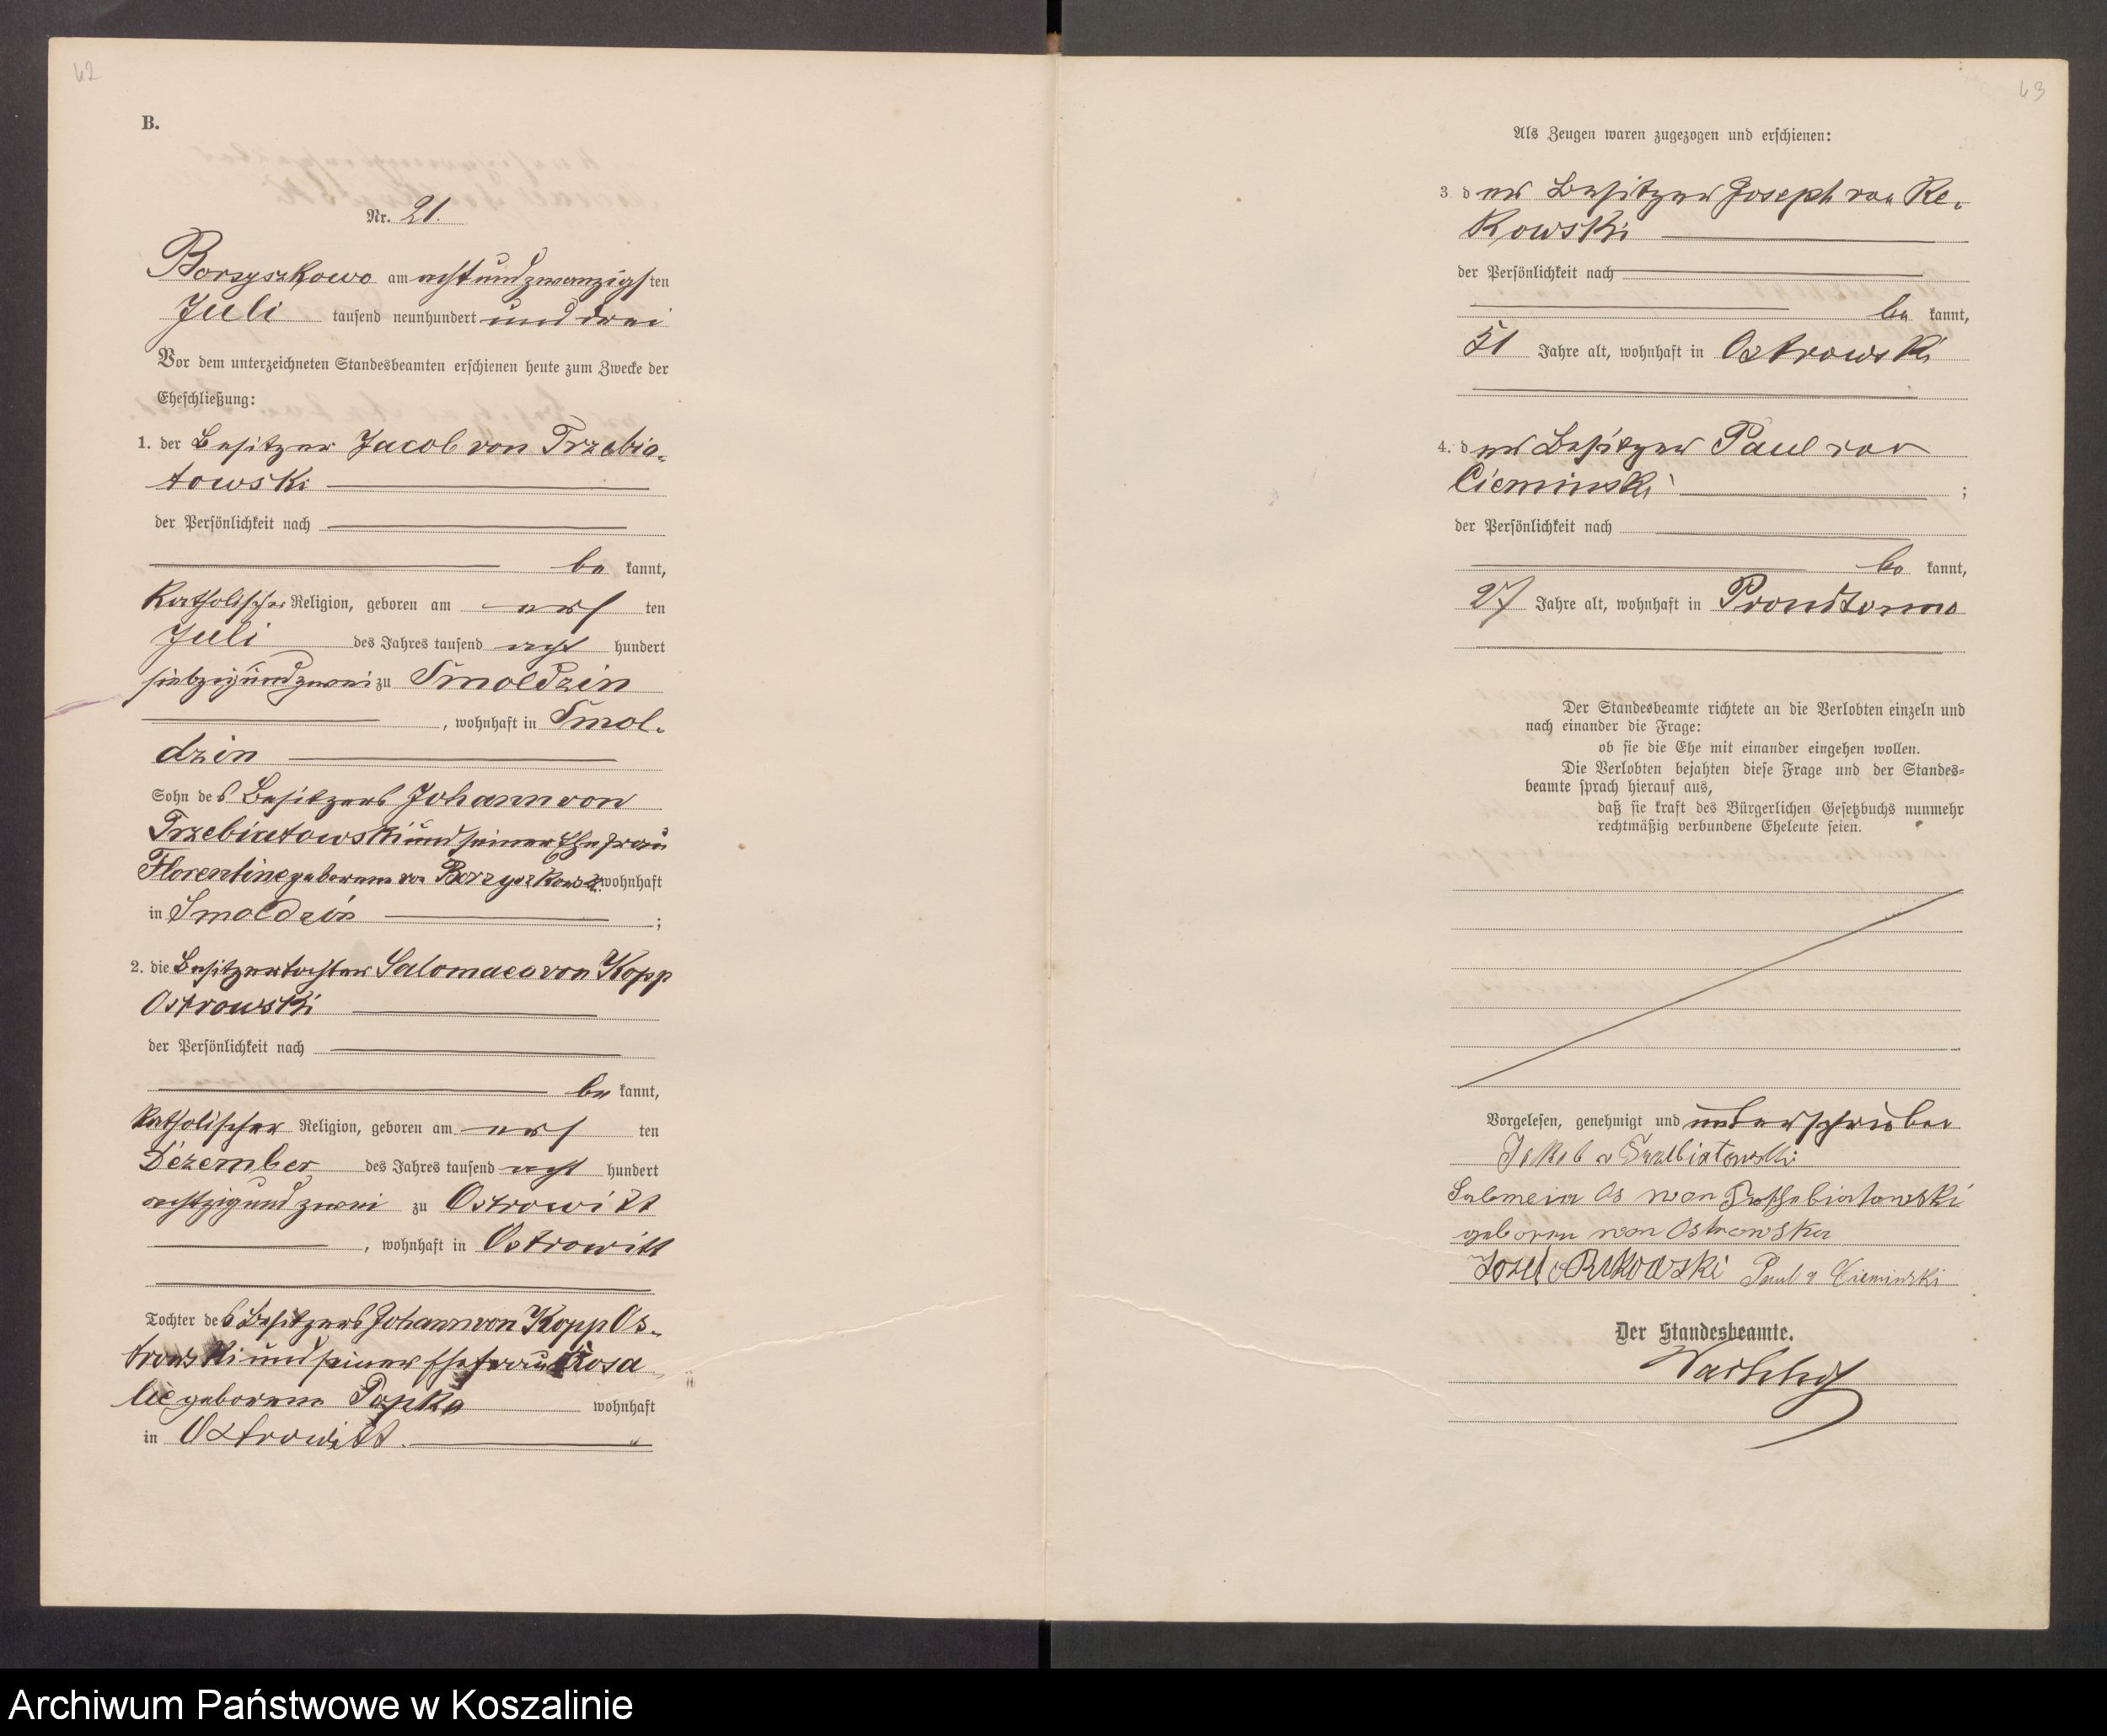 42
B.
Nr. 21.
Borzyszkowo am achtundzwanzigsten
Juli tausend neunhundert und drei
Vor dem unterzeichneten Standesbeamten erschienen heute zum Zwecke der
Eheschließung:
1. der Besitzer Jacob von Trzebia-
towski
der Persönlichkeit nach
be kannt,
katholischer Religion, geboren am ersten
Juli des Jahres tausend acht hundert
siebzig und zwei zu Smoldzin
, wohnhaft in Smol-
dzin
Sohn des Besitzers Johann von
Trzebiatowski und seiner Ehefrau
Florentine geborene von Borzyszkowski wohnhaft
in Smoldzin ;
2. die Besitzertochter Salomaea von Kopp
Ostrowski
der Persönlichkeit nach
be kannt,
katholischer Religion, geboren am ersten
Dezember des Jahres tausend acht hundert
achtzig und zwei zu Ostrowitt
, wohnhaft in Ostrowitt
Tochter des Besitzers Johann von Kopp Os-
trowski und seiner Ehefrau Rosa
lie geborene Papka wohnhaft
in Ostrowitt.
43
Als Zeugen waren zugezogen und erschienen:
3 der Besitzer Joseph von Re-
kowski
der Persönlichkeit nach
be kannt,
51 Jahre alt, wohnhaft in Ostrowski
4. der Besitzer Paul von
Cieminski ;
der Persönlichkeit nach
be kannt,
27 Jahre alt, wohnhaft in Prondzonna
Der Standesbeamte richtete an die Verlobten einzeln und
nach einander die Frage:
ob sie die Ehe mit einander eingehen wollen.
Die Verlobten bejahten diese Frage und der Standes=
beamte sprach hierauf aus,
daß sie kraft des Bürgerlichen Gesetzbuchs nunmehr
rechtmäßig verbundene Eheleute seien.
Vorgelesen, genehmigt und unterschrieben
Jakob v Trzebiatowski
Salomeia Os von Trzhebiatowski
geboren von Ostrowska
Josef v Rekowski Paul v Cieminski
Der Standesbeamte.
Archiwum Państwowe w Koszalinie